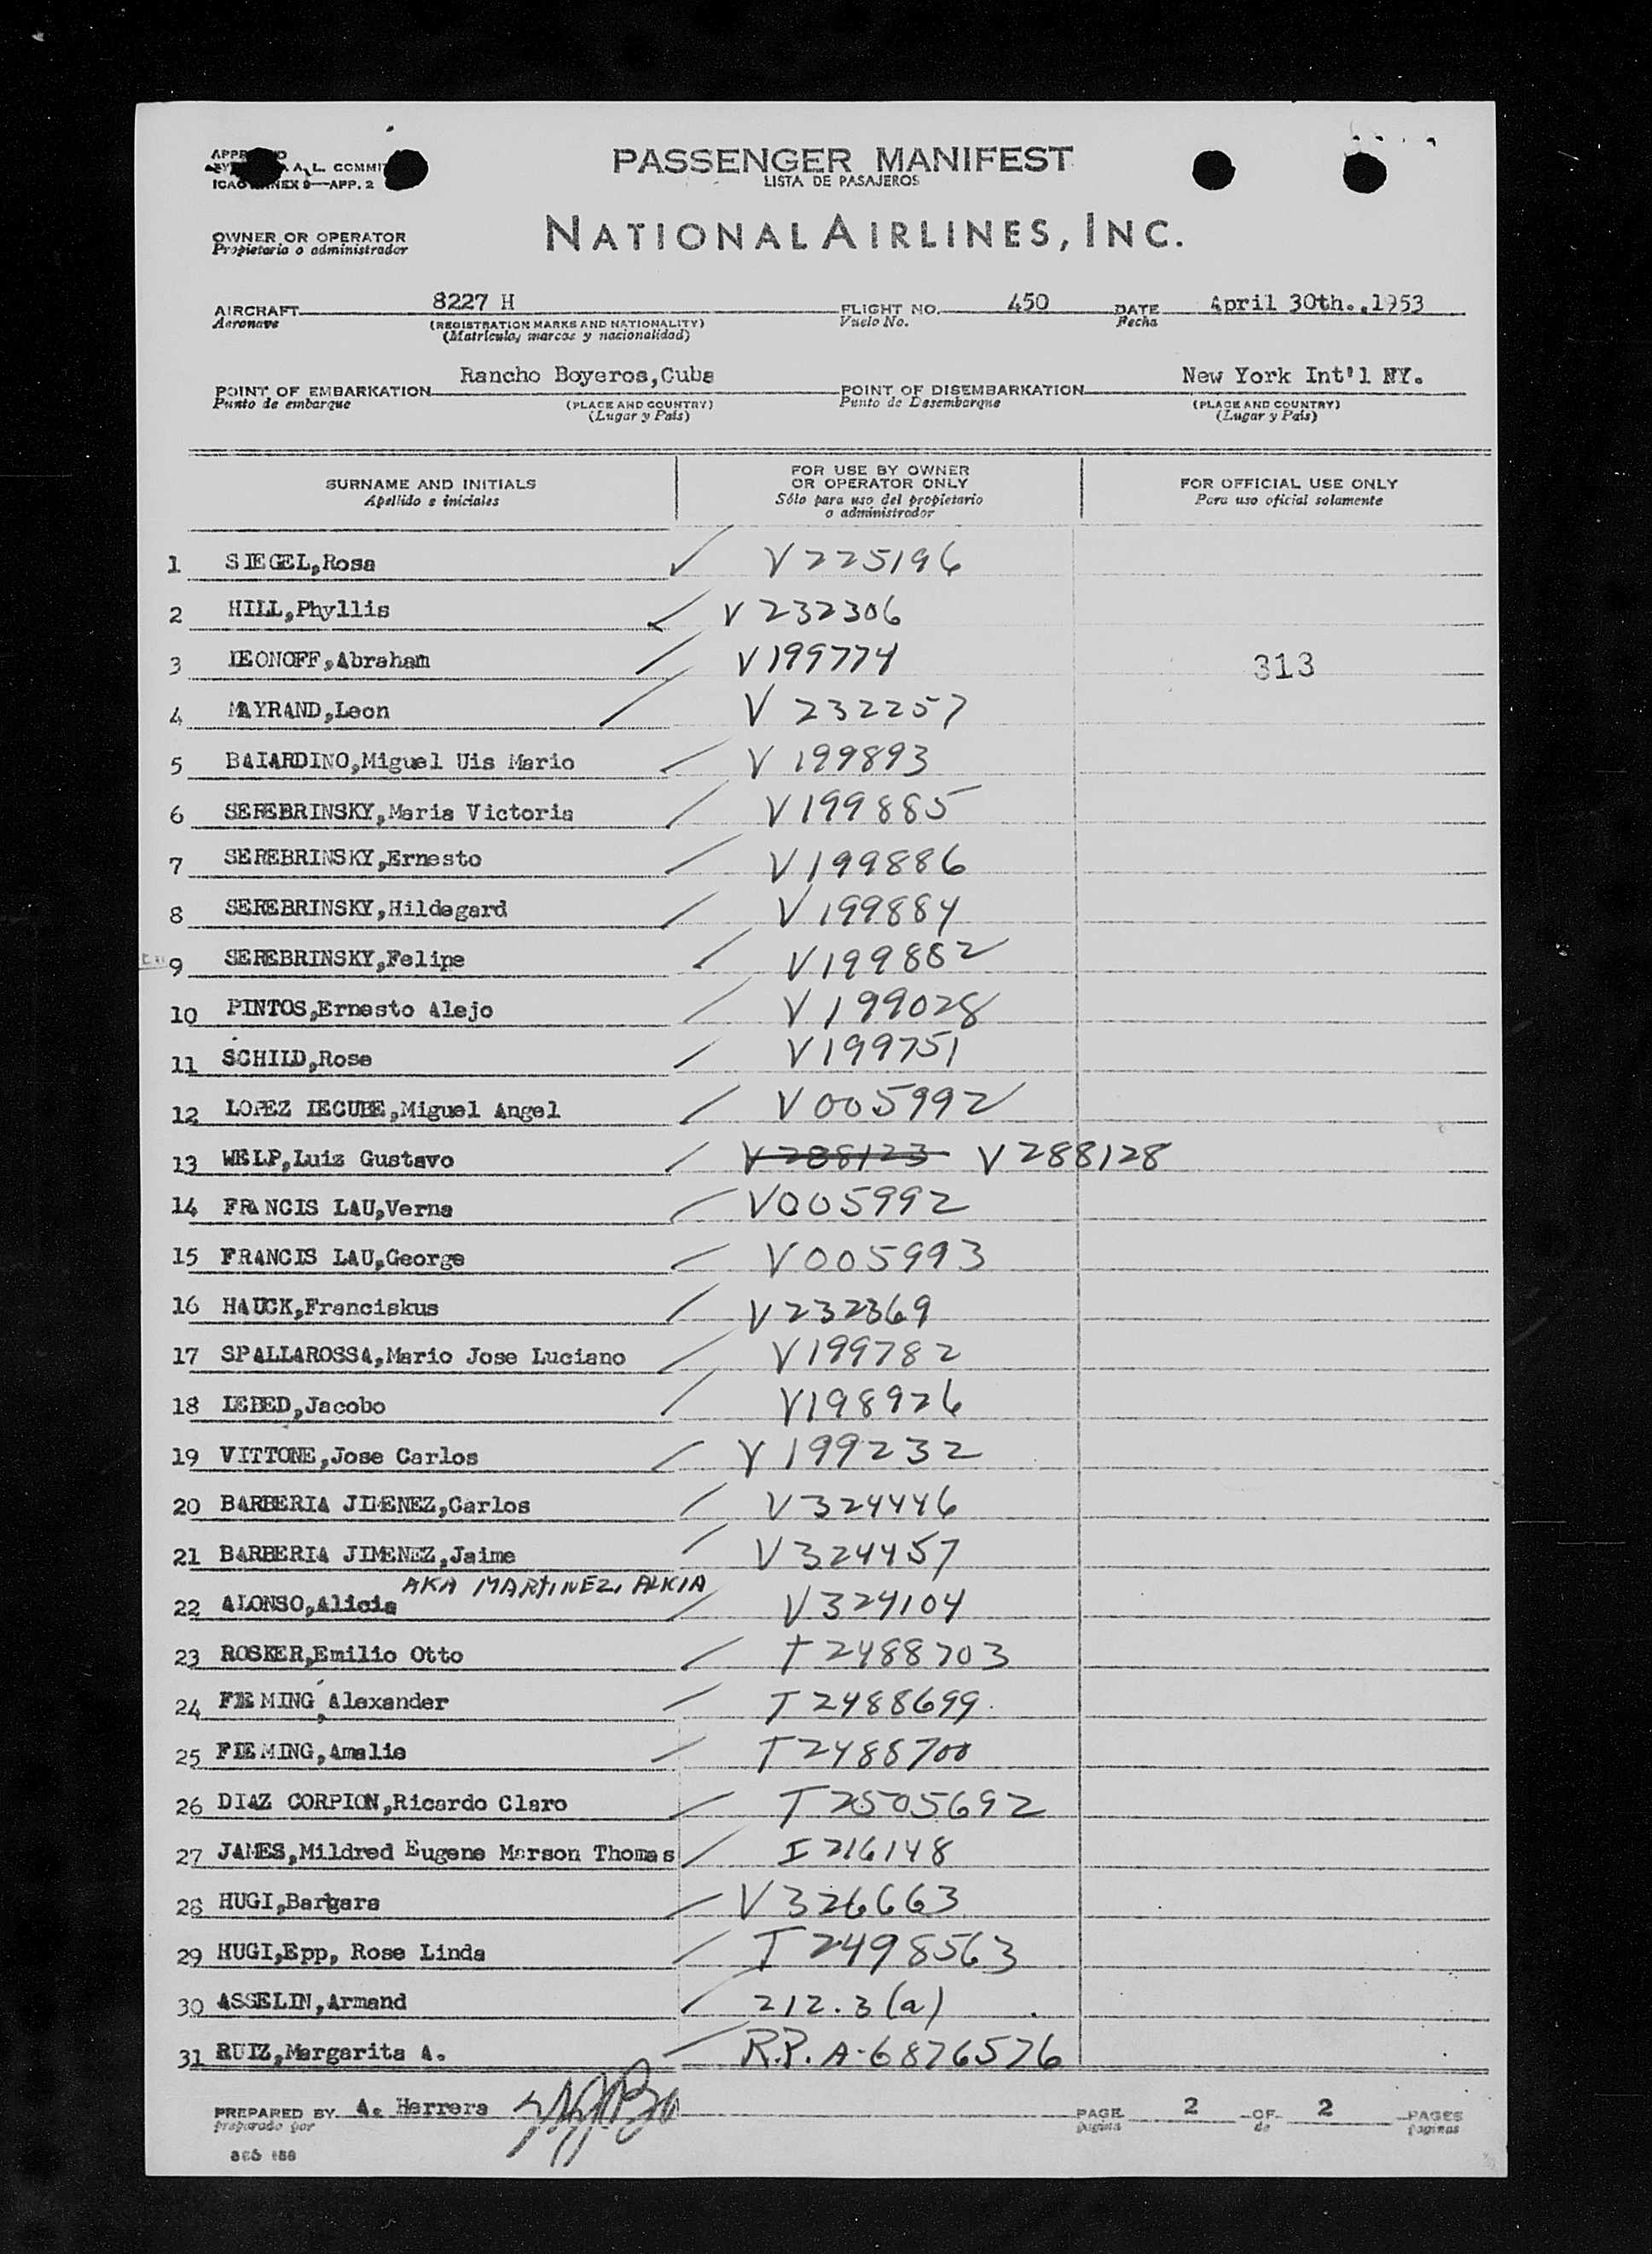 PASSENGER MANIFEST
LISTA DE PASAJEROS
A.L.
ICAO ANNEX 9—APP. 2
NATIONAL AIRLINES, INC.
OWNER OR OPERATOR
Propietario o administrador
AIRCRAFT 8227 H FLIGHT NO. 450 DATE April 30th.,1953
Aeronave (REGISTRATION MARKS AND NATIONALITY) Vuelo No. Fecha
(Matrícula, marcas y nacionalidad)
POINT OF EMBARKATION Rancho Boyeros,Cuba POINT OF DISEMBARKATION New York Int'l NY.
Punto de embarque (PLACE AND COUNTRY) Punto de Desembarque (PLACE AND COUNTRY)
(Lugar y País) (Lugar y País)
SURNAME AND INITIALS FOR USE BY OWNER OR OPERATOR ONLY FOR OFFICIAL USE ONLY
Apellido e iniciales Sólo para uso del propietario o administrador Para uso oficial solamente
1 SIEGEL,Rosa V225196
2 HILL,Phyllis V 232306
3 LEONOFF,Abraham V199774 313
4 MAYRAND,Leon V 232257
5 BAIARDINO,Miguel Uis Mario V 199893
6 SEREBRINSKY,Maria Victoria V199885
7 SEREBRINSKY,Ernesto V199886
8 SEREBRINSKY,Hildegard V199884
9 SEREBRINSKY,Felipe V199882
10 PINTOS,Ernesto Alejo V199028
11 SCHILD,Rose V199751
12 LOPEZ LECUBE,Miguel Angel V005992
13 WELP,Luiz Gustavo V288123 V288128
14 FRANCIS LAU,Verna V005992
15 FRANCIS LAU,George V005993
16 HAUCK,Franciskus V232369
17 SPALLAROSSA,Mario Jose Luciano V199782
18 LEBED,Jacobo V198926
19 VITTONE,Jose Carlos V199232
20 BARBERIA JIMENEZ,Carlos V324446
21 BARBERIA JIMENEZ,Jaime V324457
AKA MARTINEZ, ALICIA
22 ALONSO,Alicia V324104
23 ROSKER,Emilio Otto T2488703
24 FLEMING,Alexander T2488699
25 FLEMING,Amalie T2488700
26 DIAZ CORPION,Ricardo Claro T2505692
27 JAMES,Mildred Eugene Marson Thomas I216148
28 HUGI,Barbara V326663
29 HUGI,Epp, Rose Linda T2498563
30 ASSELIN,Armand 212.3(a)
31 RUIZ,Margarita A. R.P. A-6876576
PREPARED BY A. Herrera PAGE 2 OF 2 PAGES
preparado por página de páginas